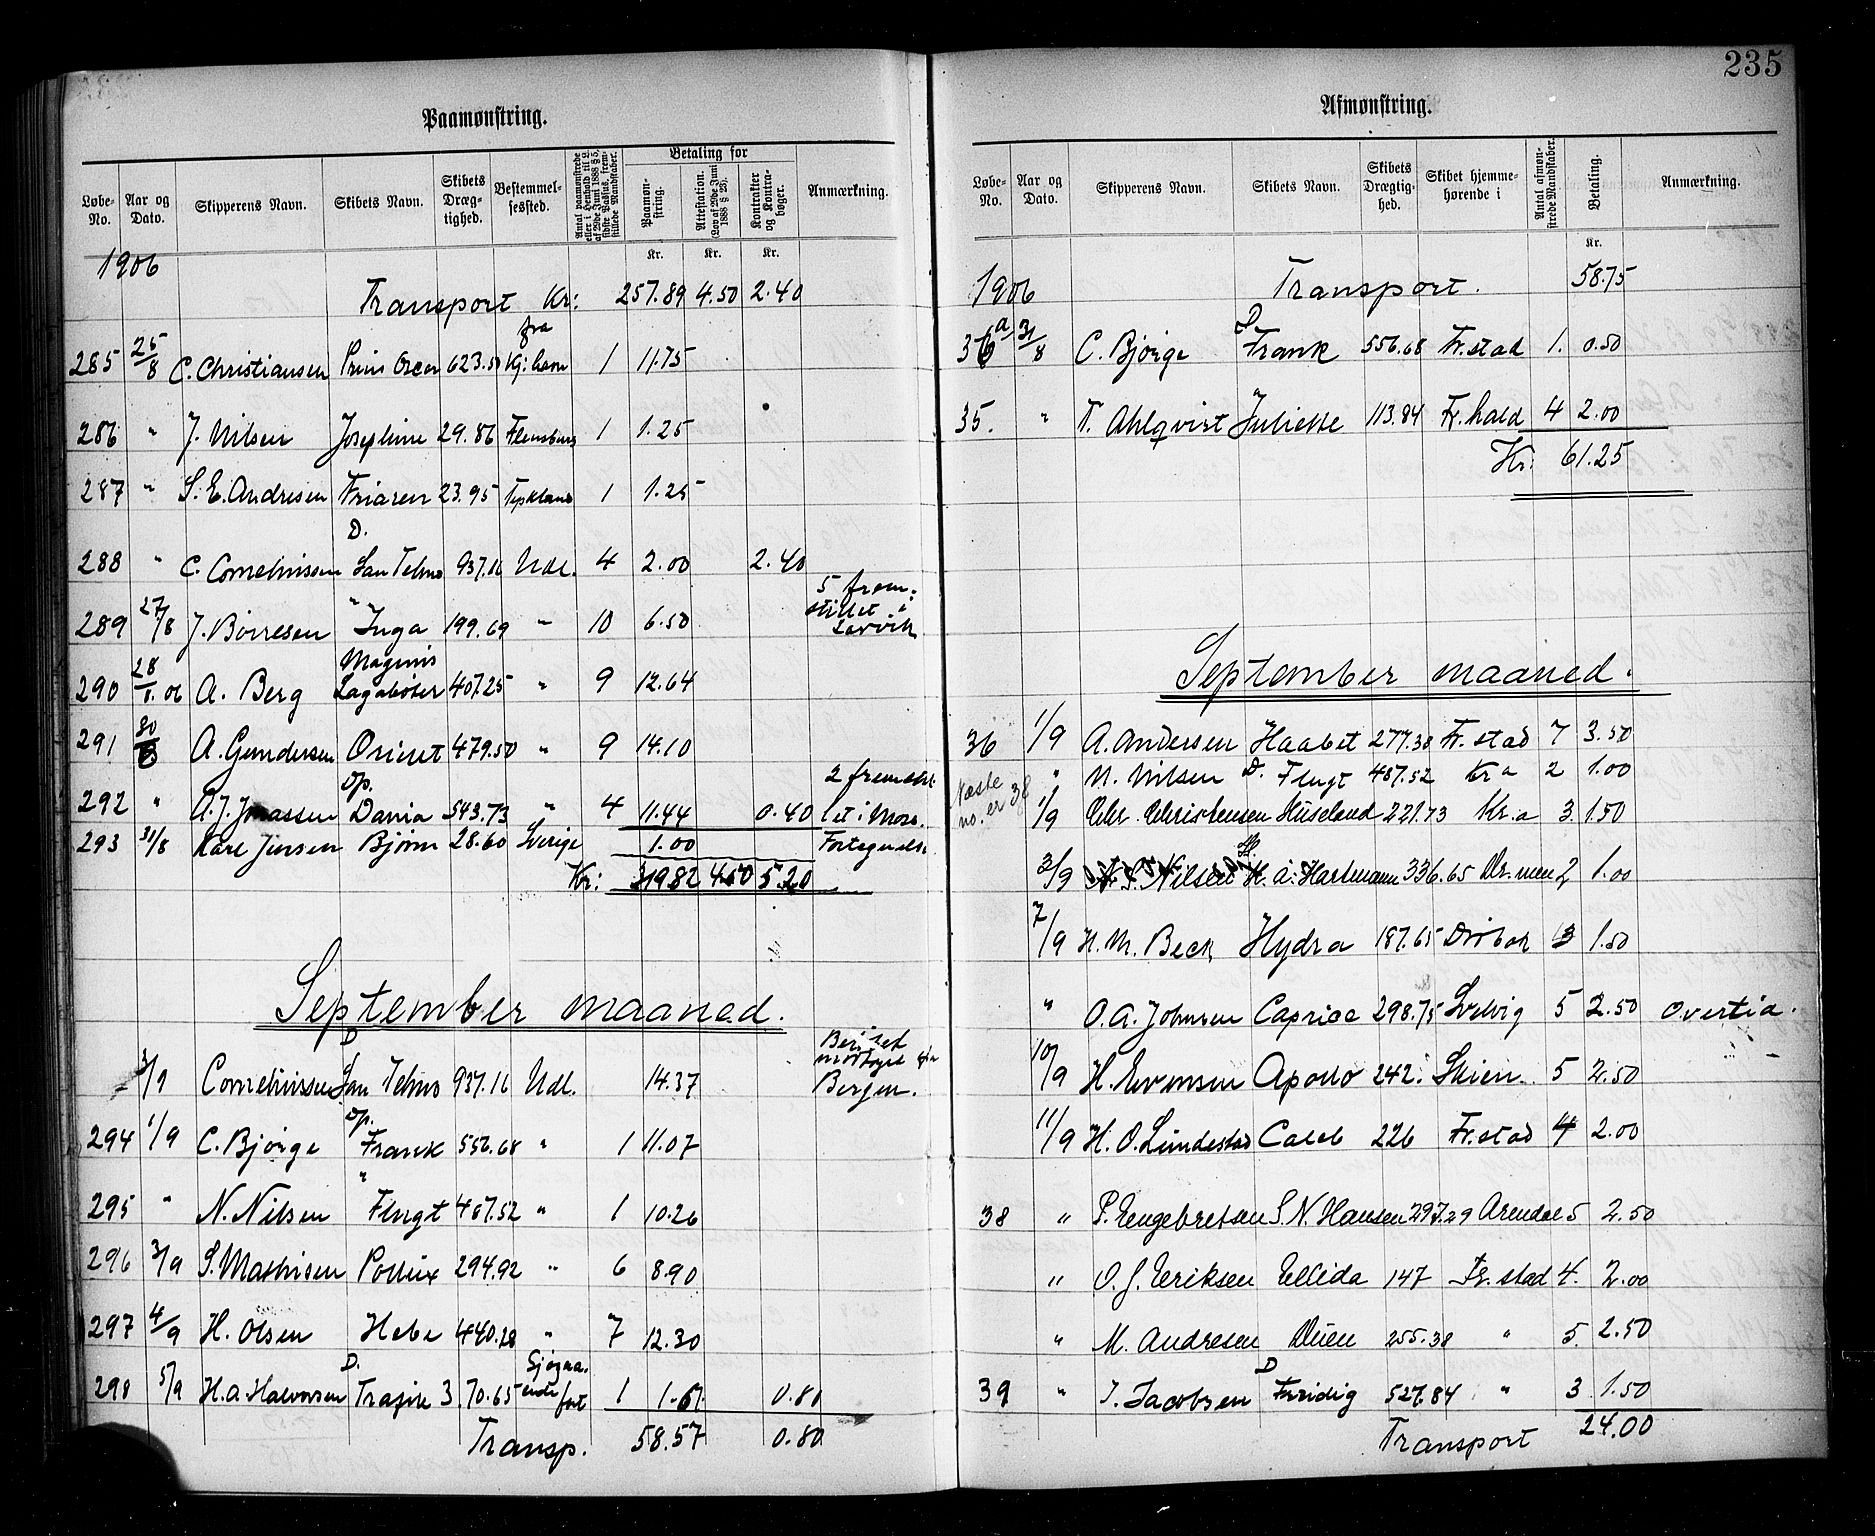 235
Paamønstring.
Løbe-No. Aar og Dato. Skipperens Navn. Skibets Navn. Skibets Dræg-tighed. Bestemmel-sessted. Betaling for Paamøn-string. Attestation. (Lov af 20de Juni 1888 § 23). Kontrakter og Kontra-bøger. Anmærkning.
Kr. Kr. Kr.
1906
Transport Kr: 257.89 4.50 2.40
285 25/8 C. Christiansen Prins Oscar 623.50 fra Kj:havn 1 11.75
286 " J. Nilsen Josephine 29.86 Flensburg 1 1.25
287 " S. E. Andresen Friaren 23.95 1 1.25
288 " C. Corneliussen D. San Telmo 937.16 Udl. 4 2.00 2.40
289 27/8 J. Börresen " Inga 199.69 " 10 6.50 5 frem:stillet i Larvik
290 28/8.06 A. Berg Magnus Lagabøter 407.25 " 9 12.64
291 30/8 A. Gundersen Orient 479.50 " 9 14.10
292 " A. J. Jonassen Dp. Dania 543.73 " 4 11.44 0.40 2 fremstil let i Moss.
293 31/8 Karl Jensen Bjørn 28.60 Sverige 1.00 Fortegnelse
Kr: 319.82 4.50 5.20
September maaned.
3/9 Corneliussen D San Telmo 937.16 Udl. 14.37 Bergen.
294 1/9 C. Bjørge Dp. Frank 556.68 " 1 11.07
295 " N. Nilsen " Flugt 467.52 " 1 10.26
296 3/9 S. Mathisen Pollux 294.92 " 6 8.90
297 4/9 H. Olsen Hebe 440.28 " 7 12.30
298 5/9 H. A. Halvorsen D. Trafik 3.70.65 Sjøgaa. ende fart 1 1.61 0.80
Transp. 58.57 0.80
Afmønstring.
Løbe-No. Aar og Dato. Skipperens Navn. Skibets Navn. Skibets Drægtig-hed. Skibet hjemme-hørende i Antal afmøn-strede Mandskaber. Betaling. Anmærkning.
Kr.
1906 Transport. 58.75
36a 31/8 C. Bjørge D Frank 556.68 Fr.stad 1. 0.50
35. " T. Ahlqvist Juliette 113.84 Fr.hald 4 2.00
Kr: 61.25
September maaned.
36 1/9 A. Andersen Haabet 277.38 Fr.stad 7 3.50
Næste no. er 38
" N. Nilsen D. Flugt 467.52 Kr a 2 1.00
1/9 Chr. Christensen Huseland 221.73 Kr.a 3 1.50
3/9 N. S. Nilsen H. A. Hartmann 336.65 Dr.men 2 1.00
7/9 H. M. Beck Hydra 187.65 Drøbak 3 1.50
" O. A. Johnsen Caprice 298.75 Svelvig 5 2.50 Overtid.
10/9 H. Evensen Apollo 242. Skien. 5 2.50
11/9 H. O. Lundestad Caleb 226 Fr.stad 4 2.00
38 " P. Engebretsen S. N. Hansen 297.29 Arendal 5 2.50
" O. J. Eriksen Ellida 147 Fr. stad 4. 2.00
" M. Andresen Duen 255.38 " 5. 2.50
39 " J. Jacobsen D Freidig 527.84 " 3 1.50
Transport 24.00